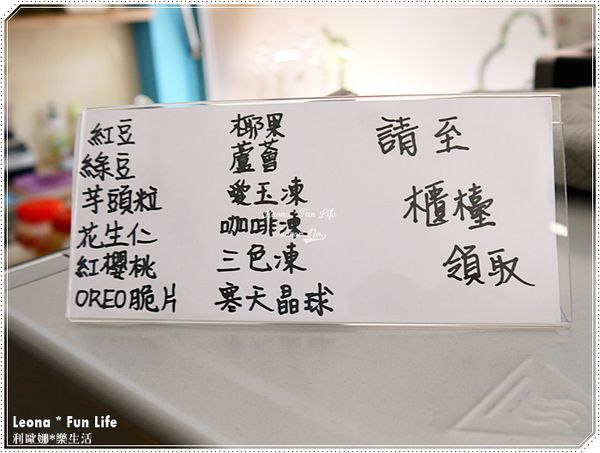 紅豆
綠豆
芋頭粒
花生仁
紅櫻桃
OREO脆片
椰果
蘆薈
愛玉凍
咖啡凍
三色凍
寒天晶球
請至
櫃檯
領取
Leona * Fun Life
Leona * Fun Life
利歐娜*樂生活